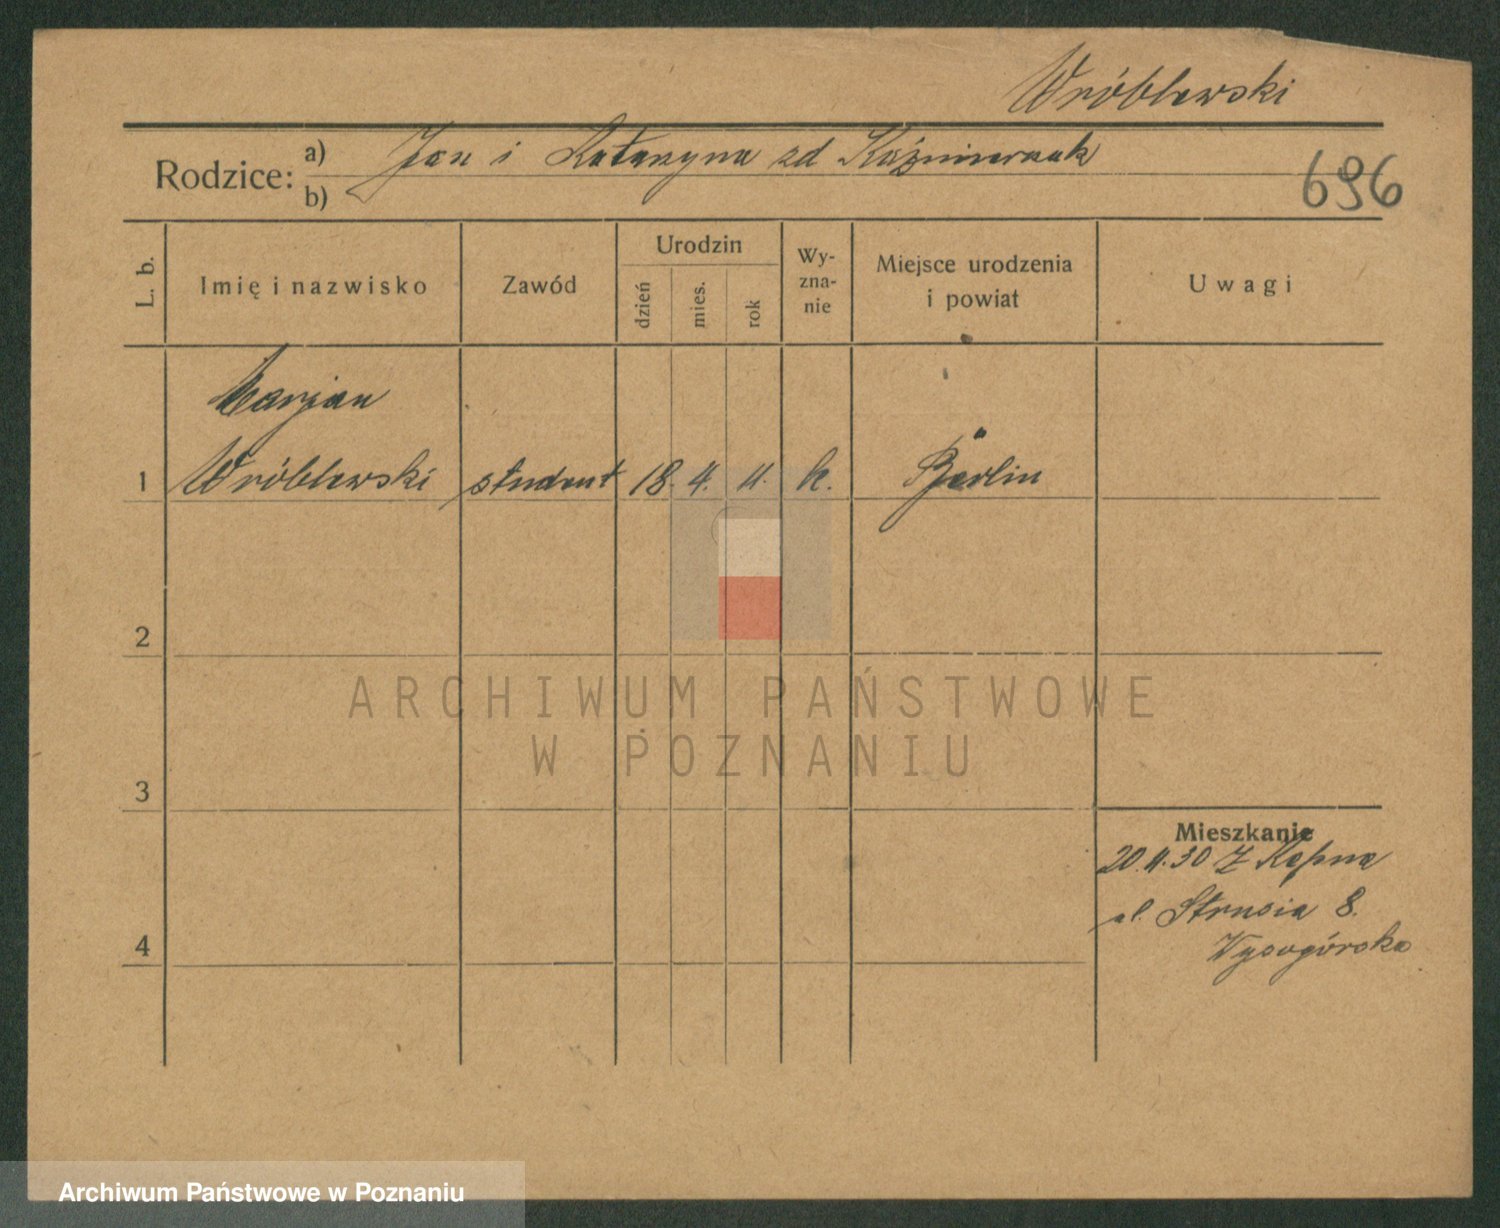 Wróblewski
Rodzice: a) Jan i Katarzyna zd Kaźmierczak
b)
696
L. b.
Imię i nazwisko
Zawód
Urodzin
dzień
mies.
rok
Wy-
zna-
nie
Miejsce urodzenia
i powiat
Uwagi
Marjan
1 Wróblewski student 18. 4. 11. k. Berlin
2
ARCHIWUM PAŃSTWOWE
W POZNANIU
3
Mieszkanie
20.11.30 z Kępna
ul. Strusia 8.
Wysogórska
4
Archiwum Państwowe w Poznaniu